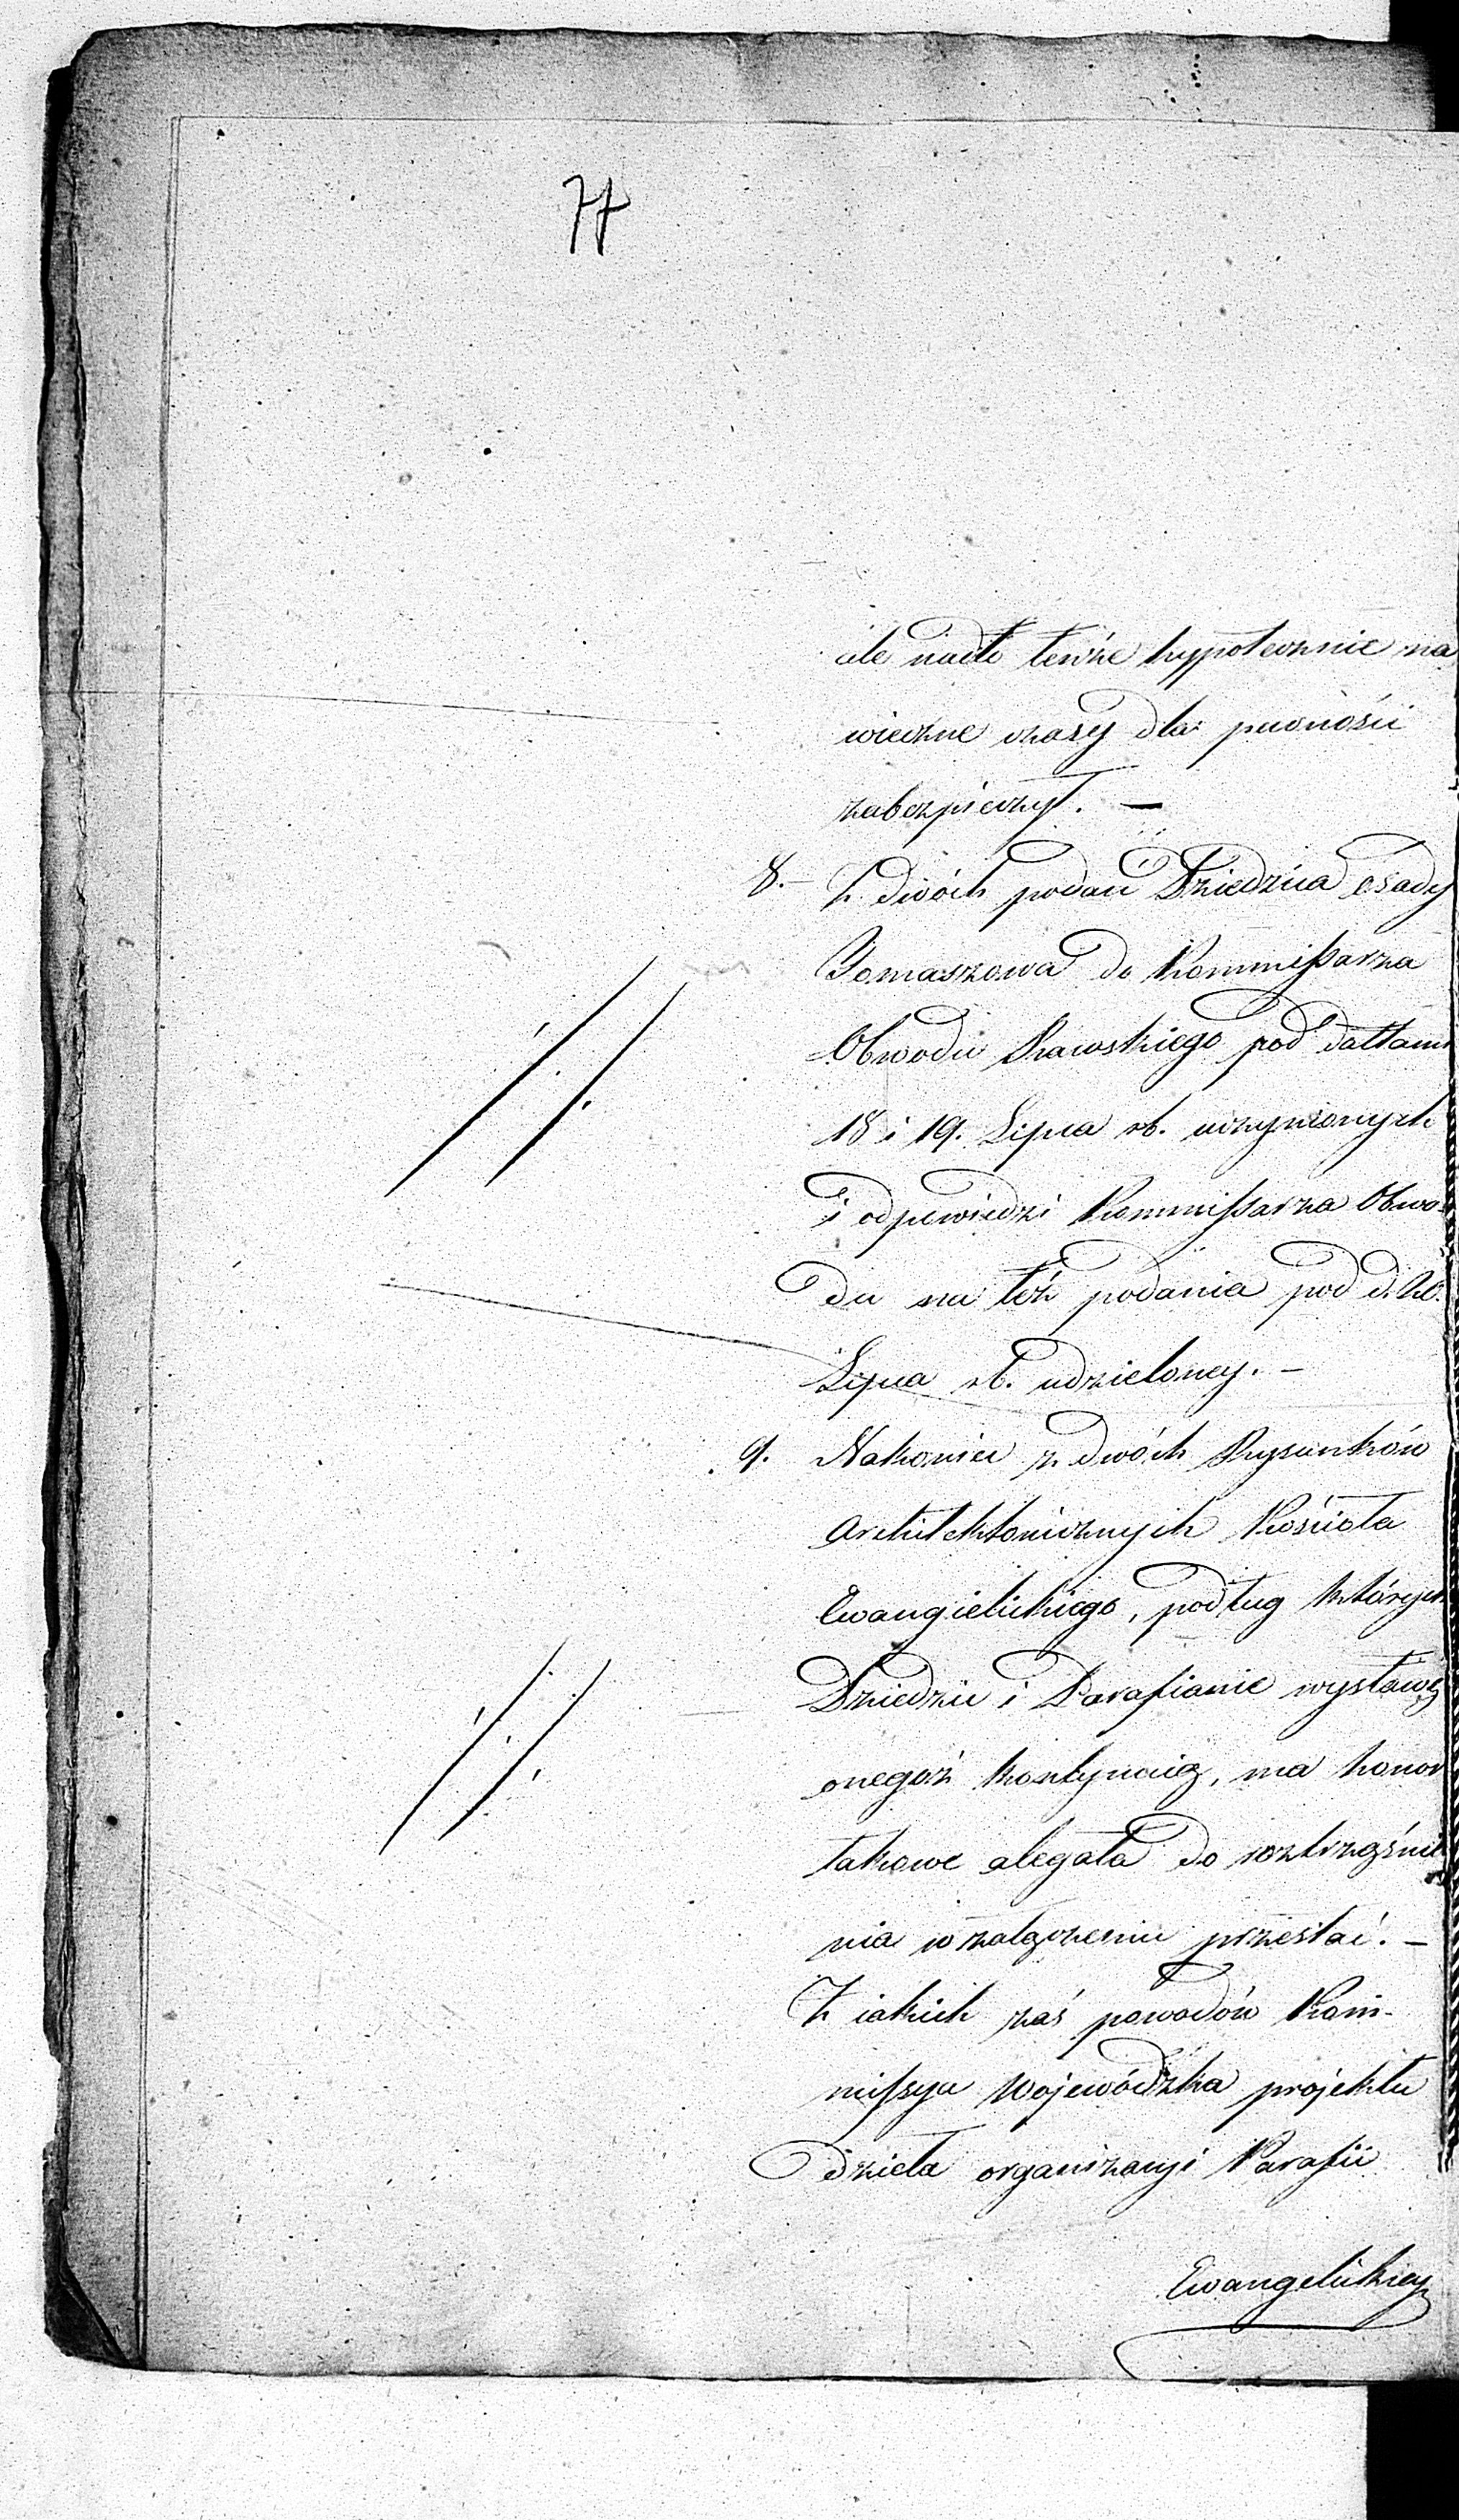 77
ale nadto tewże hypotecznie na
wieczne czasy dla pewności
zabezpieczył. —
8. – Z dwóch podań Dziedzica osady
Tomaszowa do Kommissarza
Obwodu Rawskiego pod dattami
18 i 19. Lipca rb. uczynionych
i odpowiedzi Kommissarza Obwo-
du na też podania pod d.
Lipca rb. udzieloney. –
9. Nakoniec z dwóch Rysunków
Architektonicznych Kościoła
Ewangielickiego, podług których
Dziedzic i Parafianie wystawę
onegoż kontynuią, ma honor
takowe alegata do roztrząśnie
nia w załączeniu przesłać. –
Z iakich zaś powodów Kom-
missya Wojewódzka projektu
dzieła organizacyi Parafii
Ewangelickiey